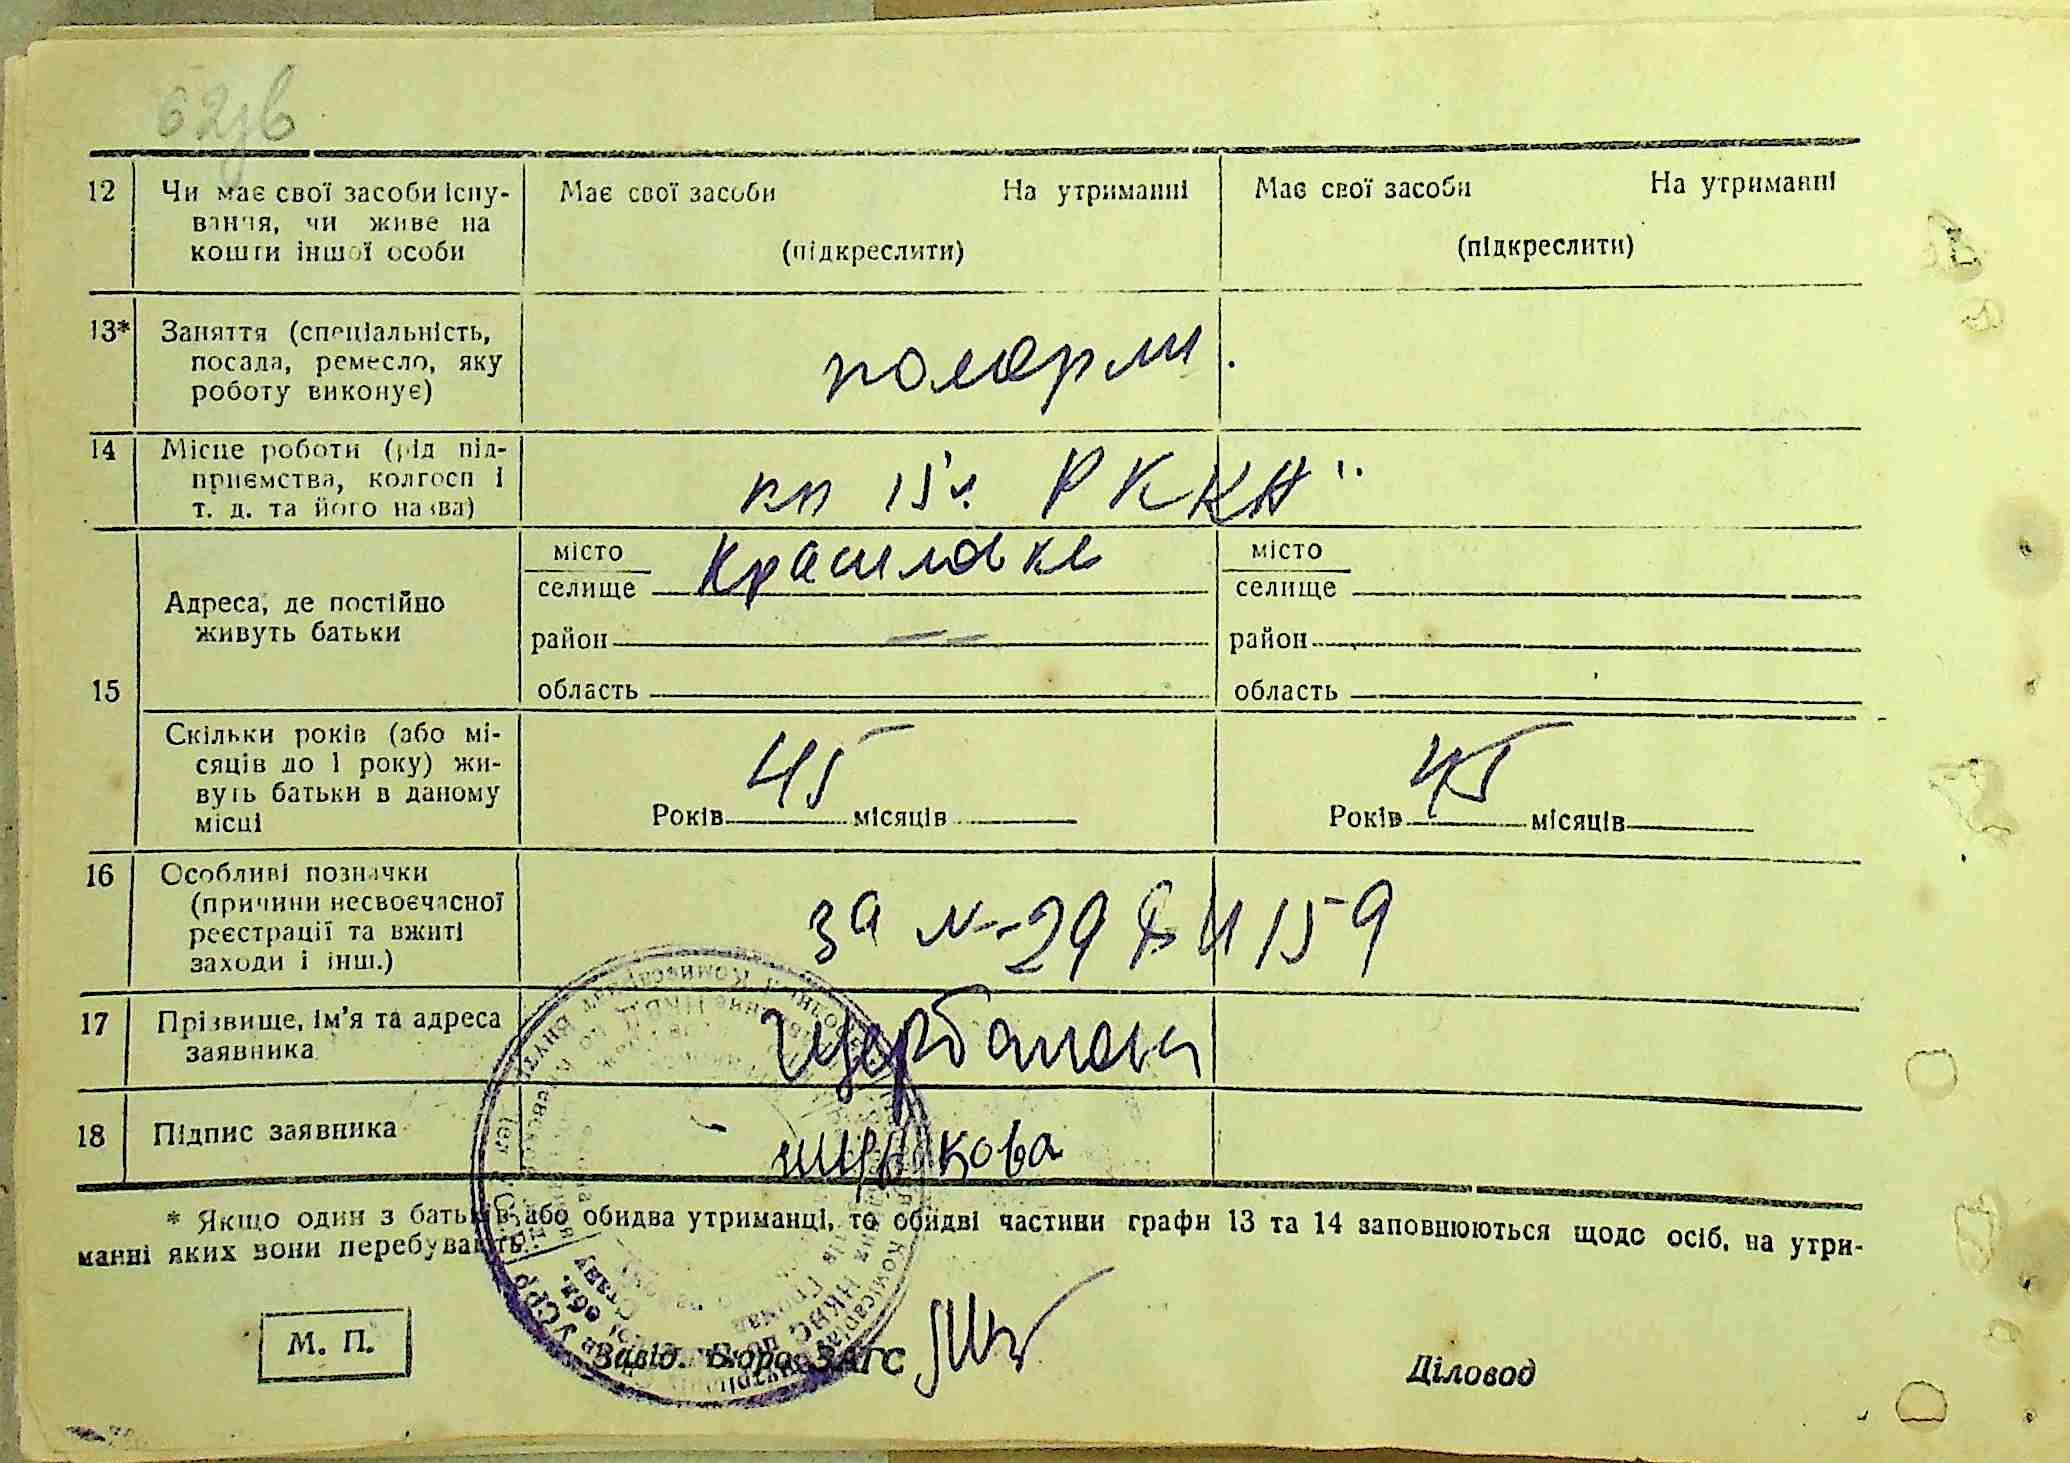 62зв
12 Чи має свої засоби існу-
вання, чи живе на
кошти іншої особи
Має свої засоби На утриманні
(підкреслити)
Має свої засоби На утриманні
(підкреслити)
13* Заняття (спеціальність,
посада, ремесло, яку
роботу виконує)
14 Місце роботи (рід під-
приємства, колгосп і
т. д. та його назва)
15 р. РККА"
15
Адреса, де постійно
живуть батьки
місто
селище Красиловка
район
область
місто
селище
район
область
Скільки років (або мі-
сяців до 1 року) жи-
вуть батьки в даному
місці
45
Років місяців
45
Років місяців
16 Особливі позначки
(причини несвоєчасної
реєстрації та вжиті
заходи і інш.)
за №-29 159
17 Прізвище, ім'я та адреса
заявника
18 Підпис заявника
* Якщо один з батьків або обидва утриманці, то обидві частини графи 13 та 14 заповнюються щодо осіб, на утри-
манні яких вони перебувають.
М. П.
Завід. Бюро ЗАГС
Діловод